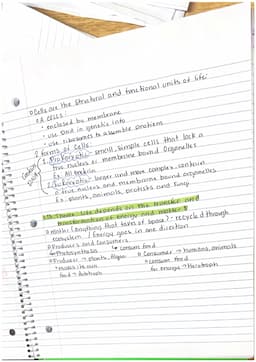 Cells are the structural and functional units of life:
All cells:
• enclosed by membrane
• use DNA in genetic info
• use ribosomes to assemble proteins
2 forms of Cells:
1. Prokaryotic - small, simple cells that lack a
true nucleus or membrane bound Organelles
Ex. All bacteria
2. Eukaryotic - larger and more complex, contain
a true nucleus and membrane bound organelles
Ex. plants, animals, protists and fungi
5th Theme: Life depends on the transfer and
transformation of energy and matter
matter (anything that takes up space): recycled through
ecosystem / Energy goes in one direction
Producers and Consumers
Photosynthesis → consume food
Producer → plants, Algae
Consumer → humans, animals
• makes its own
food → Autotroph
• consume food
for energy → Heterotroph